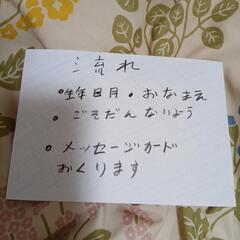 流れ
•生年月日 • おなまえ
• ごそだんないよう
• メッセージカード
おくります